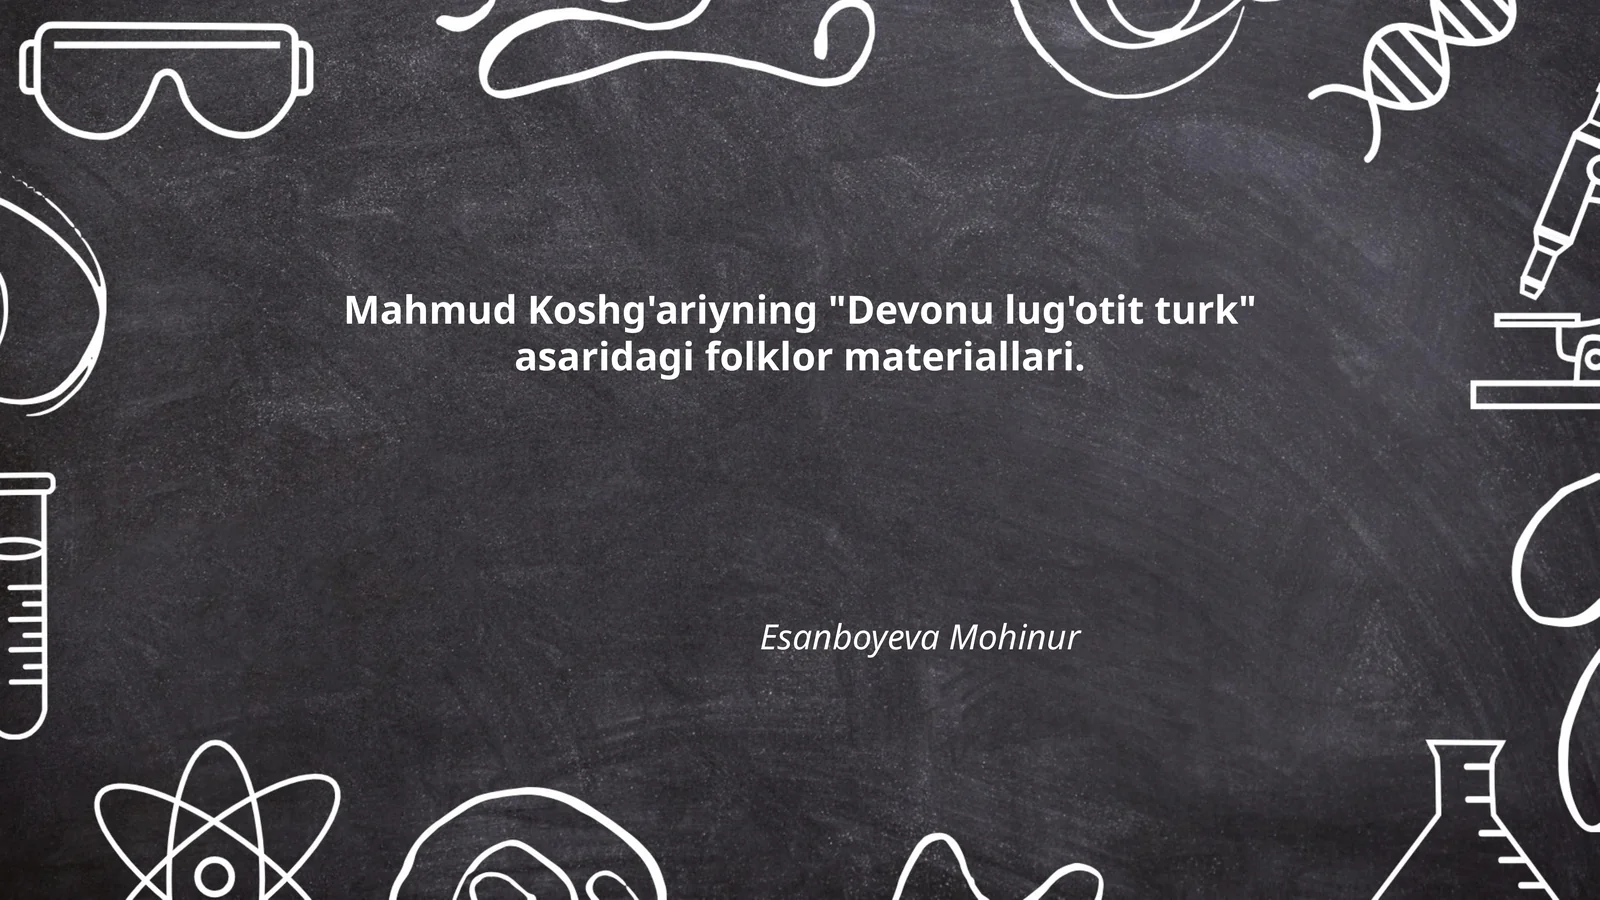 Mahmud Koshg'ariyning "Devonu lug'otit turk"
asaridagi folklor materiallari.
Esanboyeva Mohinur